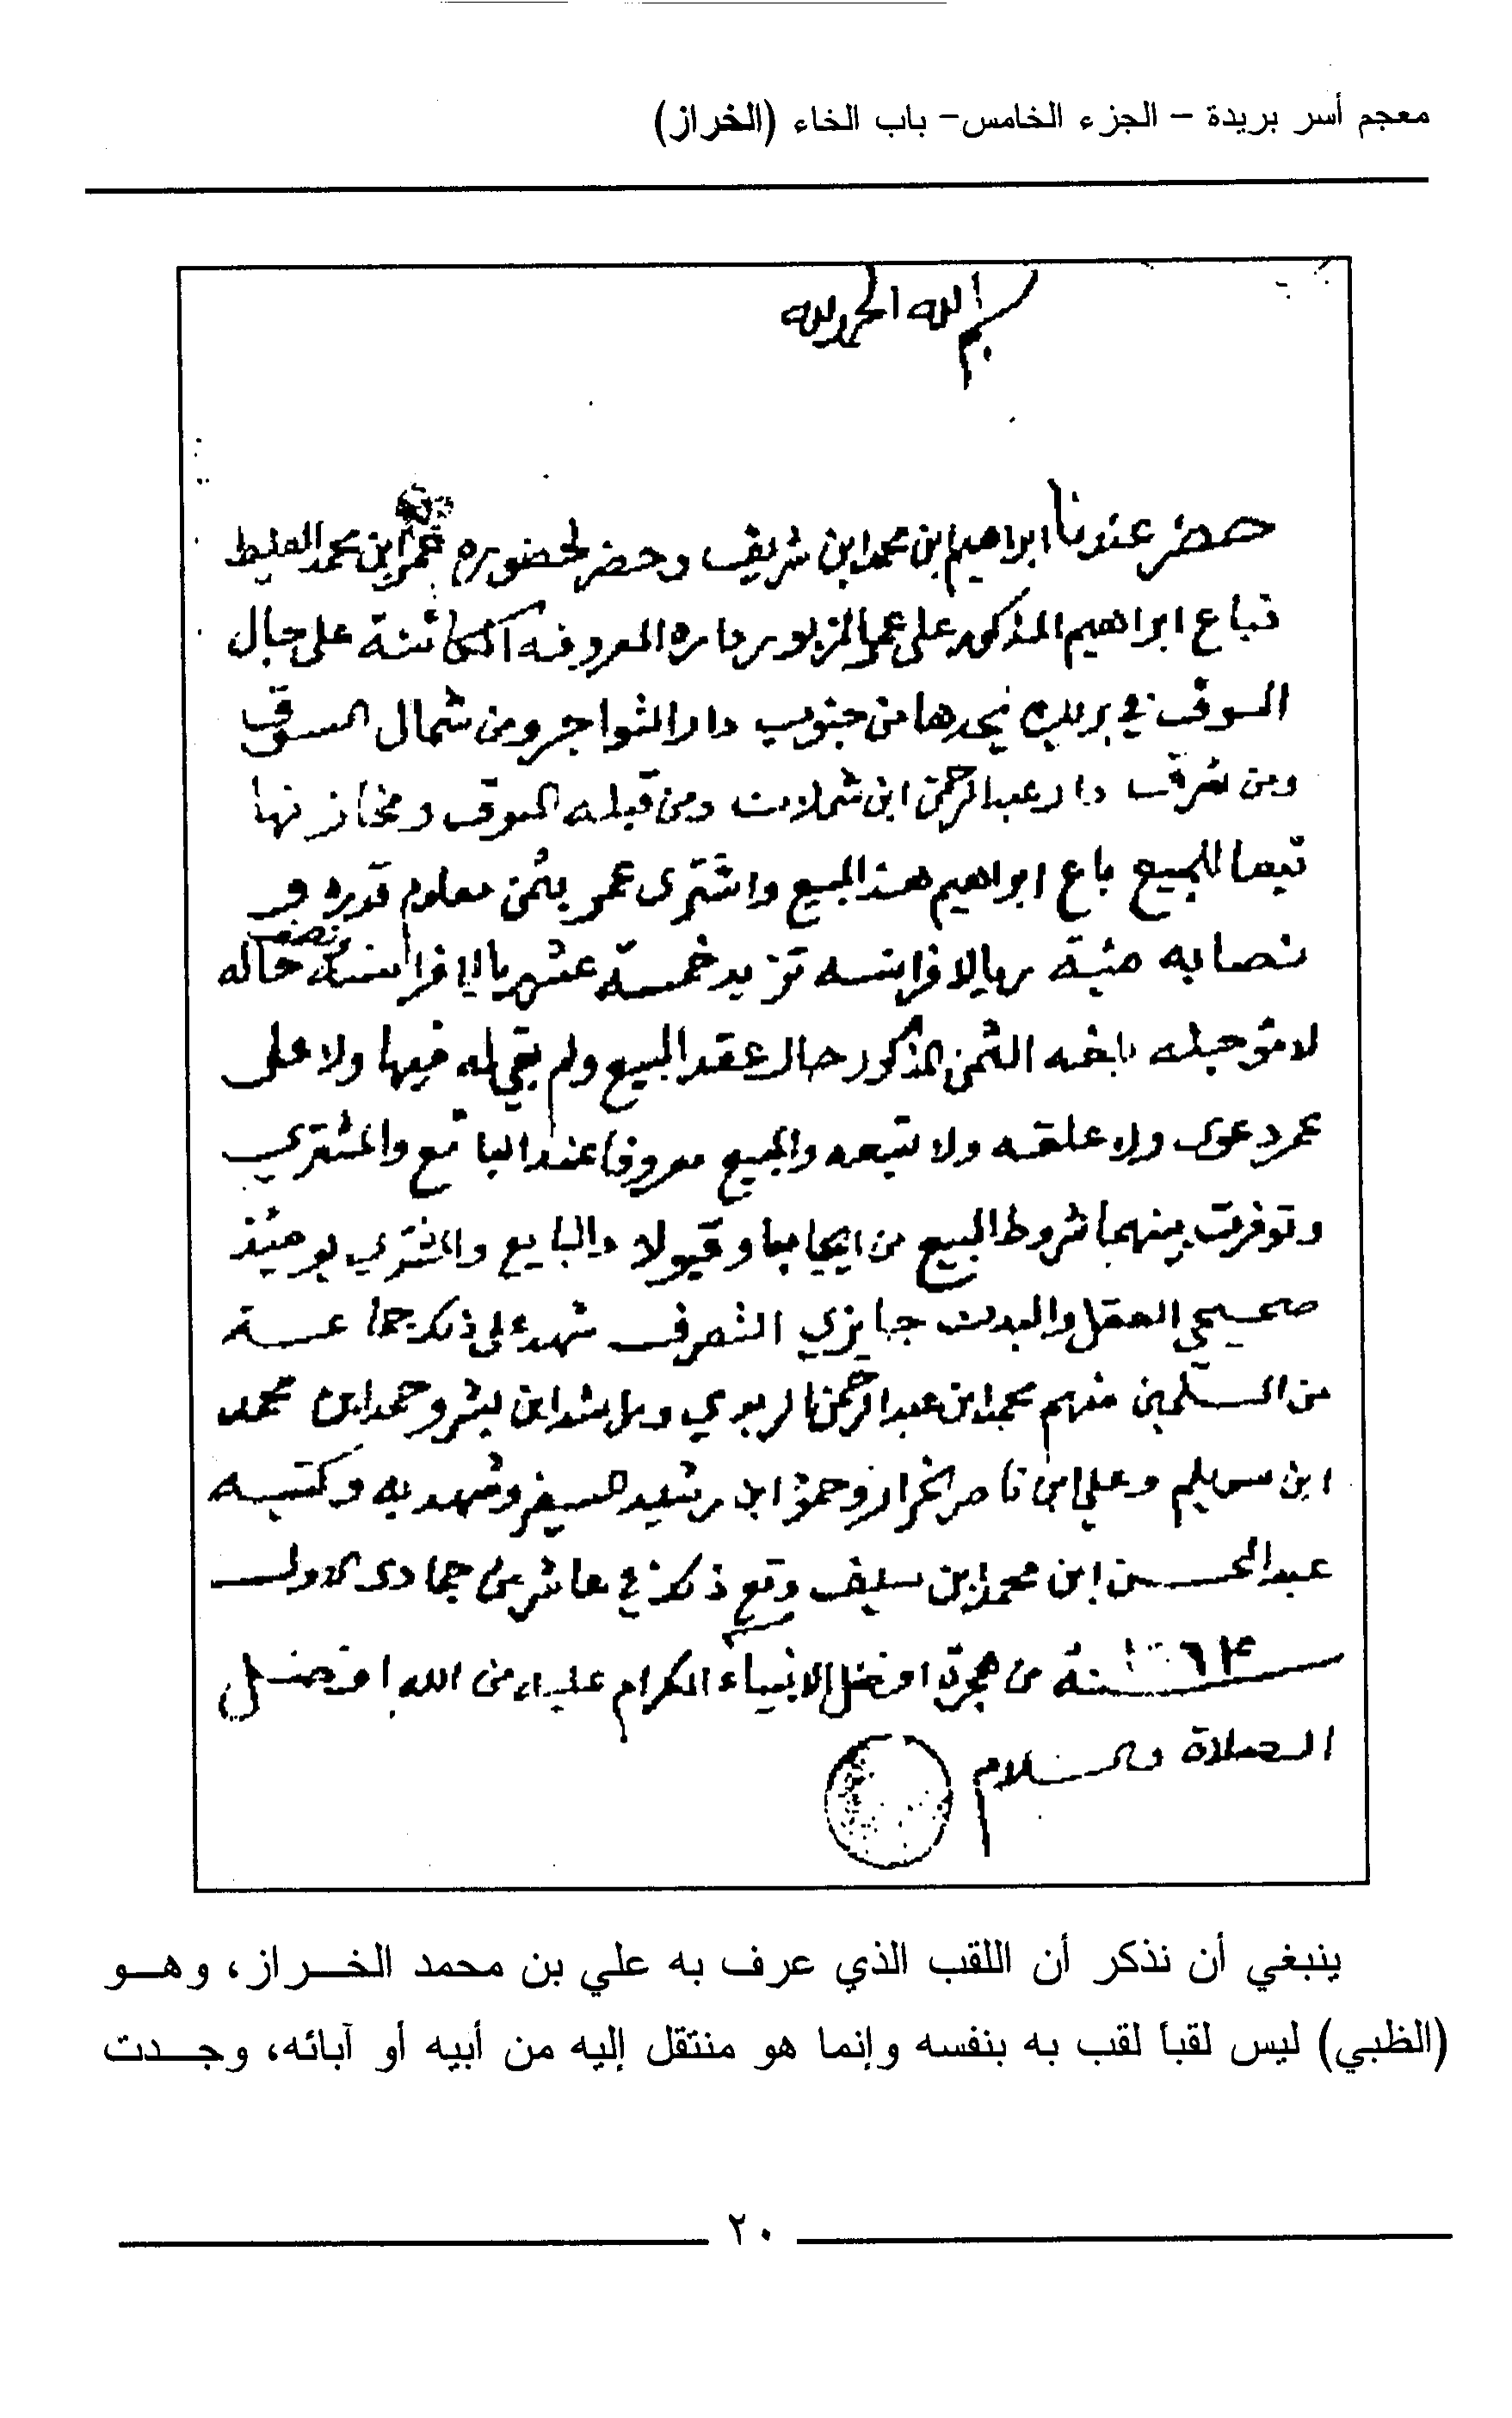 معجم أسر بريدة – الجزء الخامس– باب الخاء (الخراز)
بسم الله الحمد لله
حضر عندنا ابراهيم ابن محمد ابن شريف وحضر لحضوره عمر ابن محمد العليط
فباع ابراهيم المذكور على عمر المزبور داره المعروفه الكائنة على جال
السوق في بريده يحدها من جنوب دار الثواجر ومن شمال السوق
ومن شرق دار عبدالرحمن ابن شملان ومن قبله السوق ومخازنها
تبعا للمبيع باع ابراهيم هذا المبيع واشترى عمر بثمن معلوم قدره و
نصابه مئية ريالا فرانسه تزيد خمسة عشر ريالا فرانسه ونصف حاله
لا مؤجله بلغه الثمن المذكور حال عقد المبيع ولم يبقى له فيها ولا على
عمر دعوى ولا علقه ولا تبعه والمبيع معروفا عند البائع والمشتري
وتوفرت بينهما شروط المبيع من ايجابا وقبولا والبايع والمشتري يومئذ
صحيحي العقل والبدن جايزي التصرف شهد على ذلك جماعة
من المسلمين منهم محمد ابن عبدالرحمن الربدي وراشد ابن بشر وحمد ابن محمد
ابن سويلم وعلي ابن ناصر الخراز وحمد ابن رشيد السيفر وشهد به وكتبه
عبدالمحسن ابن محمد ابن سيف وقع ذلك في عاشر من جمادى الاول
سنة ١٢٦٤ من هجرة افضل الانبياء الكرام عليه من الله افضل
الصلاة والسلام
ينبغي أن نذكر أن اللقب الذي عرف به علي بن محمد الخـــراز، وهــو
(الظبي) ليس لقباً لقب به بنفسه وإنما هو منتقل إليه من أبيه أو آبائه، وجــدت
٢٠